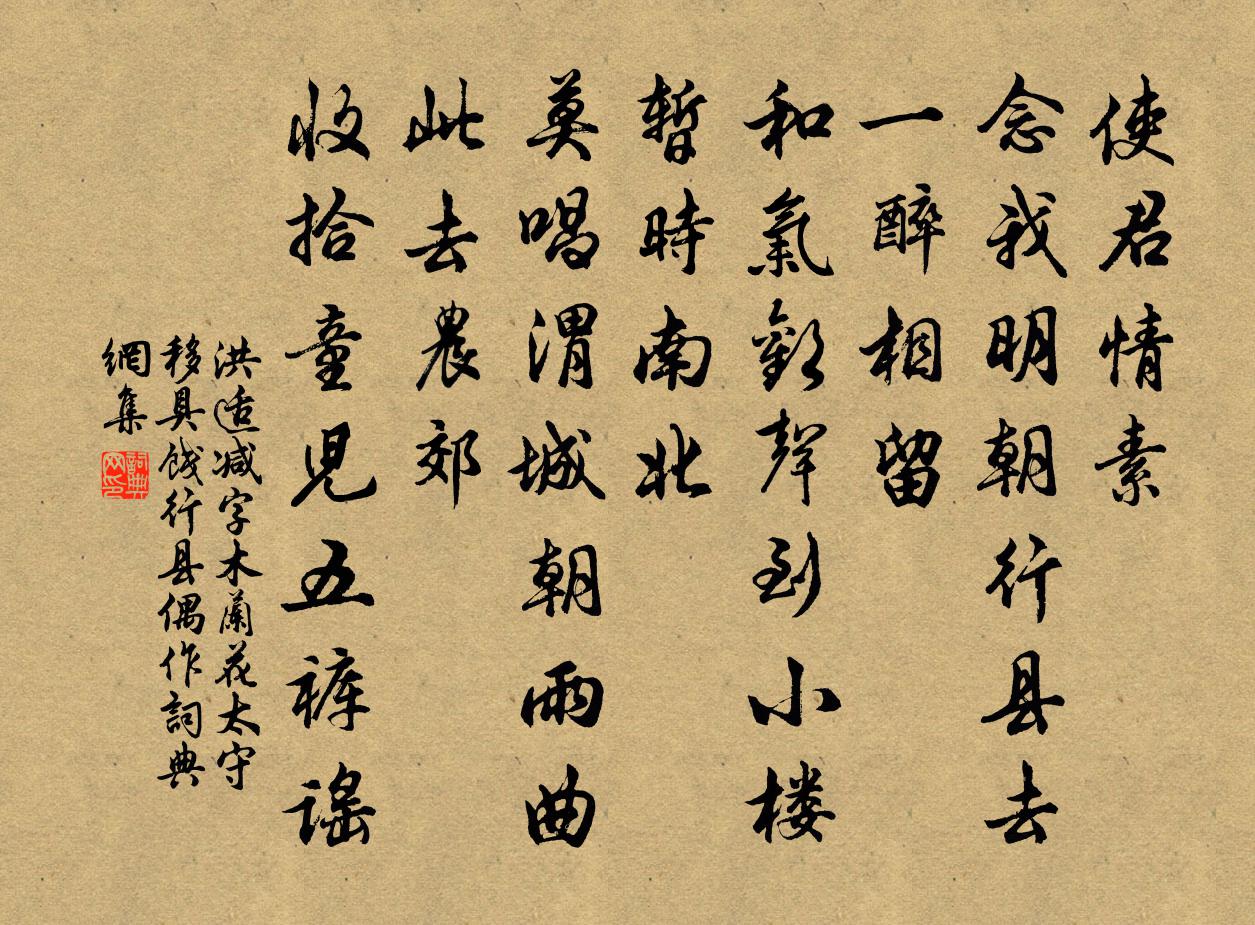 使君情素
念我明朝行县去
一醉相留
和氣歡聲到小楼
暫時南北
莫唱渭城朝雨曲
此去農郊
收拾童児五裤謡
洪适减字木蘭花太守
移具餞行县偶作詞典
網集
詞典网印